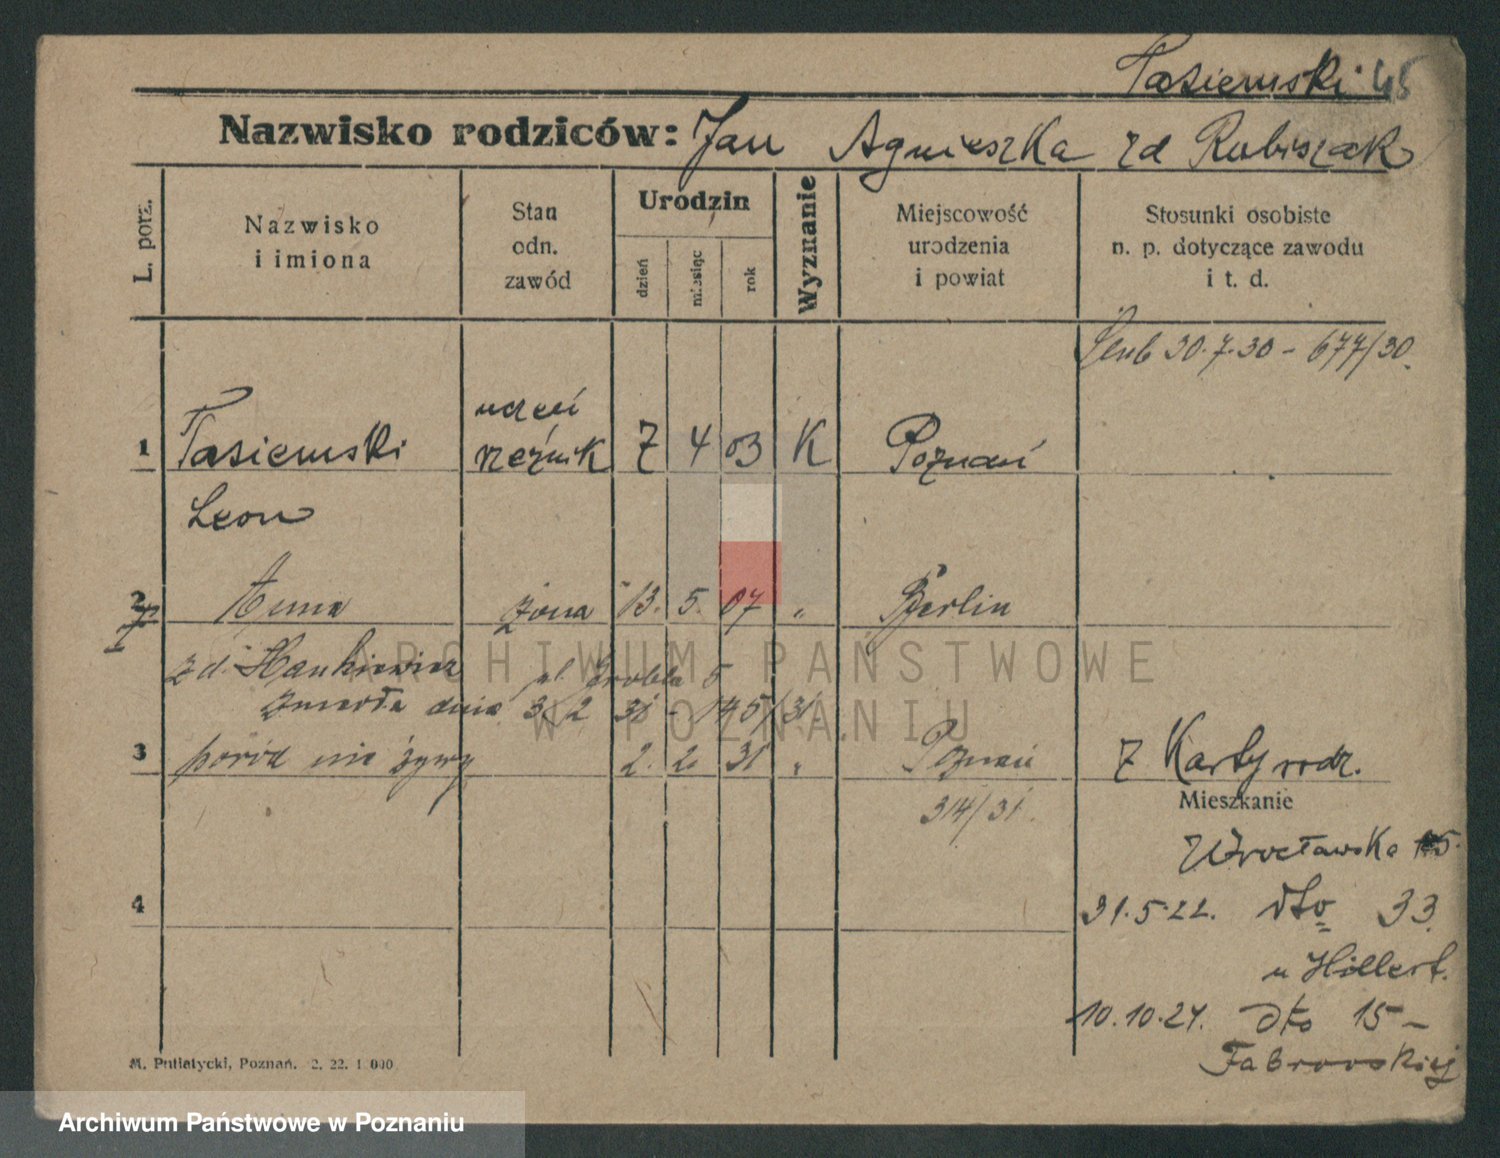 Tasiemski 45
Nazwisko rodziców: Jan Agnieszka zd Rubiszak
L. porz.
Nazwisko i imiona
Stan odn. zawód
Urodzin
dzień miesiąc rok
Wyznanie
Miejscowość urodzenia i powiat
Stosunki osobiste n. p. dotyczące zawodu i t. d.
Ślub 30.7.30 - 677/30.
uczeń
1 Tasiemski rzeźnik 7 4 03 K Poznań
Leon
2 Anna żona 13. 5. 07 " Berlin
zd. Hankiewicz pl. Grobla 5
zmarła dnia 3. 2 31 - 145/31
3 poród nie żywy 2. 2. 31 " Poznań Z Karty rodz.
314/31.
Mieszkanie
Wrocławska 15.
4
31.5.22. dto 33
u Hillert.
10.10.24. dto 15 -
Fabrowskiej
M. Putiatycki, Poznań. 2. 22. 1 000
ARCHIWUM PAŃSTWOWE
W POZNANIU
Archiwum Państwowe w Poznaniu